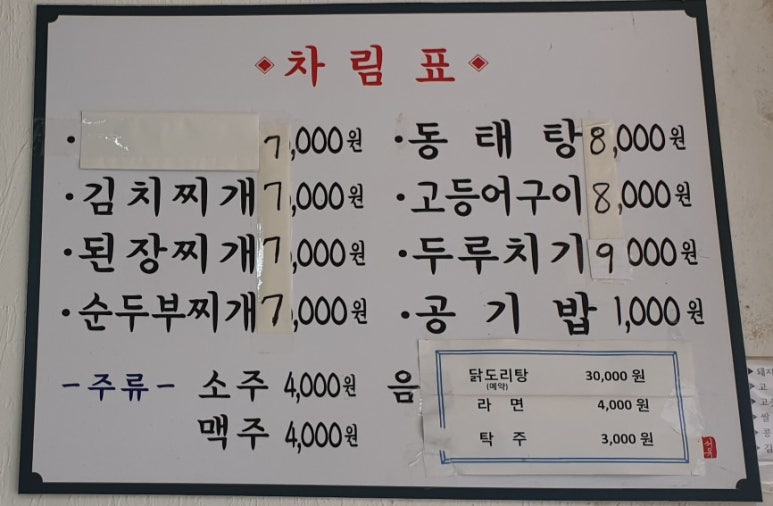 차림표
7,000원
김치찌개 7,000원
된장찌개 7,000원
순두부찌개 7,000원
동태탕 8,000원
고등어구이 8,000원
두루치기 9 000원
공기밥 1,000원
-주류- 소주 4,000원
맥주 4,000원
음
닭도리탕 30,000 원
(예약)
라면 4,000 원
탁주 3,000 원